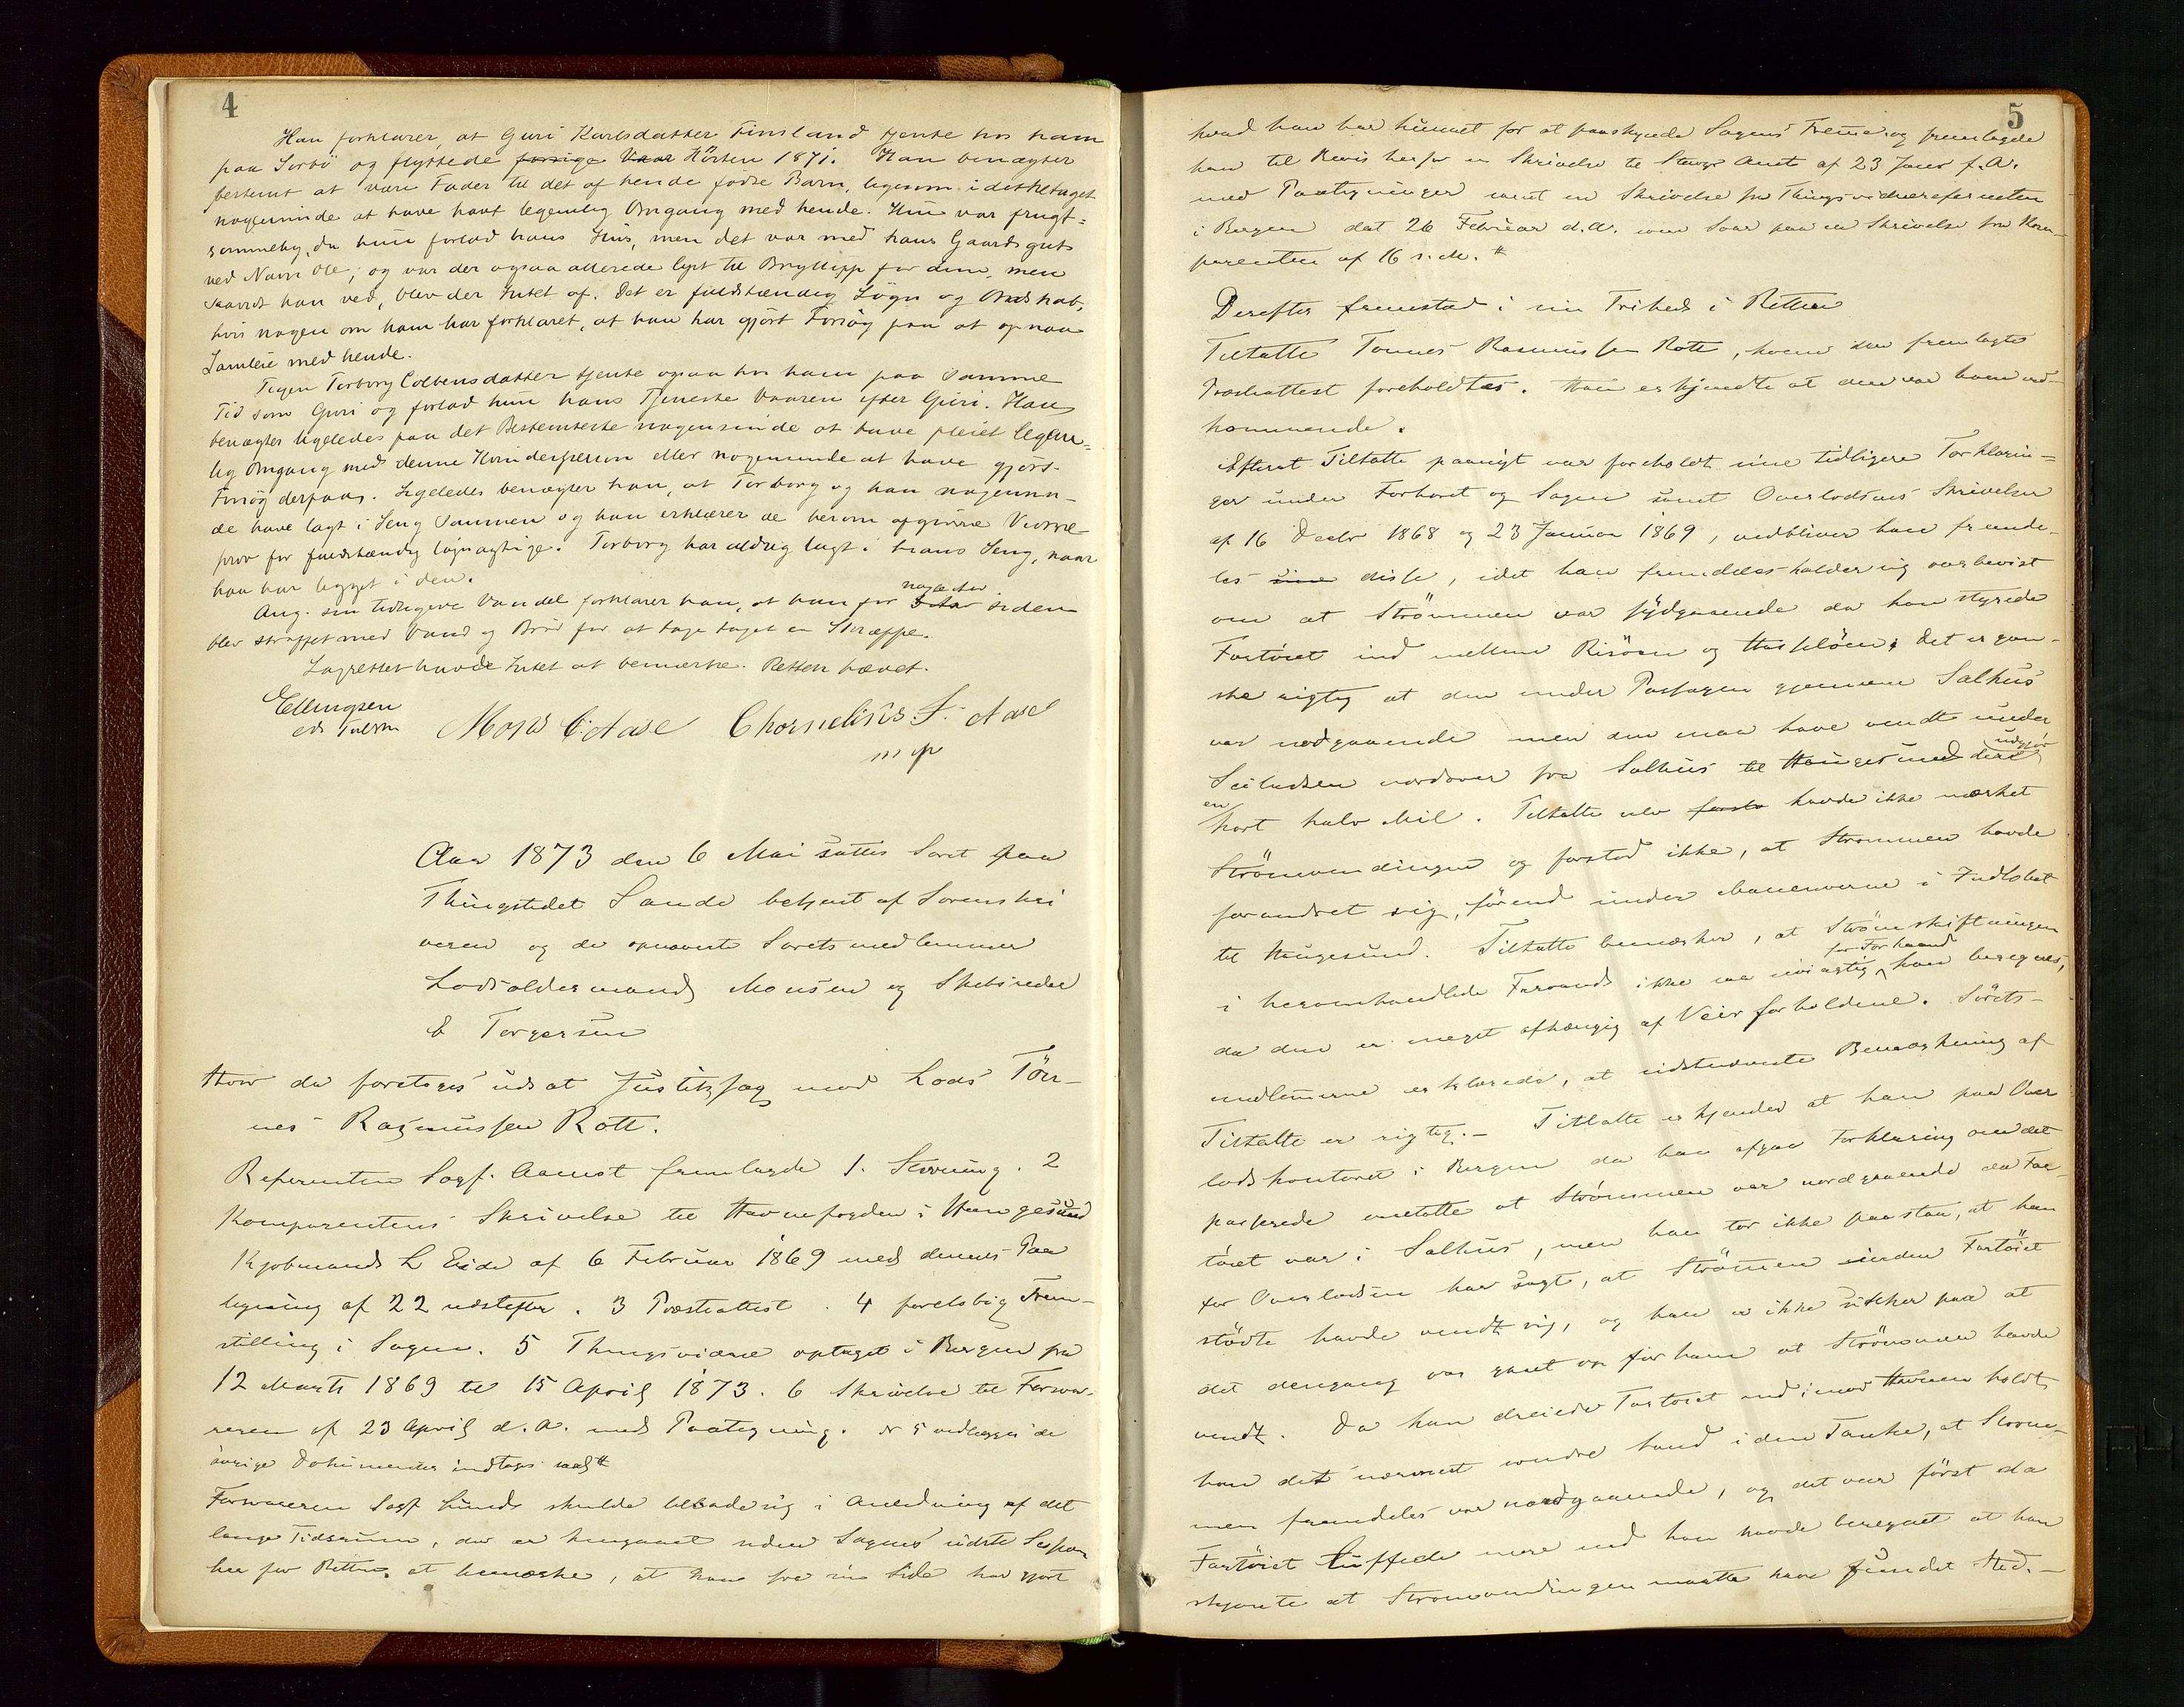 4
Han forklarer, at Guri Karlsdatter Finsland tjente hos ham
paa Sorbö og flyttede forrige Vaar Hösten 1871. Han benægter
bestemt at være Fader til det af hende fødte Barn, ligesom i det hele taget
nogensinde at have havt legemlig Omgang med hende. Hun var frugt-
sommelig, da hun forlod hans Hus, men det var med hans Gaardsgut
ved Navn Ole; og var der ogsaa allerede lyst til Bryllupp for dem, men
saavidt han ved, blev der Intet af. Det er fuldstændig Løgn og Ondskab,
hvis nogen om ham har forklaret, at han har gjört Forsög paa at opnaa
Samleie med hende.
Pigen Torborg Colbensdatter tjente ogsaa hos ham paa samme
Tid som Guri og forlod hun hans Tjeneste Vaaren efter Guri. Han
benægter ligeledes paa det Bestemteste nogensinde at have pleiet legem-
lig Omgang med denne Kvindesperson eller nogensinde at have gjört
Forsög derpaa. Ligeledes benægter han, at Torborg og han nogensin-
de have lagt i Seng sammen og han erklærer de herom afgivne Vidne-
prov for fuldstændig løgnagtige. Torborg har aldrig lagt i hans Seng, naar
han har ligget i den.
Ang. sin tidligere Vandel forklarer han, at han for nogle Aar siden
blev straffet med Vand og Bröd for at tage taget en Skræppe.
Lagrettet havde Intet at bemærke. Retten hævet.
Ellingsen
eds Fuldm Mons C. Aase Chornelius S. Aase
m f p
Aar 1873 den 6 Mai sattes Soret paa
Thingstedet Sande betjent af Sorenskri
veren og de opnævnte Soretsmedlemmer
Lodsoldermand Monsen og Skibsreder
B Torgersen
Hvor da foretoges udsat Justitssag mod Lods Tön-
nes Rasmussen Rott.
Referenten Sagf. Aamot fremlagde 1. Stevning. 2
Komparentens Skrivelse til Havnefogden i Haugesund
Kjøbmand L Eide af 6 Februar 1869 med dennes Paa
tegning af 22 næstefter. 3 Præsteattest. 4 foreløbig Frem-
stilling i Sagen. 5 Thingsvidne optaget i Bergen fra
12 Marts 1869 til 15 April 1873. 6 Skrivelse til Forsva-
reren af 23 April d.A. med Paategning. N 5 vedlægges de
övrige Dokumenter indtages
Forsvareren Sagf Lund skulde tillade sig i Anledning af det
lange Tidsrum, der er hengaaet siden Sagens sidste
her for Retten at bemærke, at han fra sin Side har gjort
5
hvad han har kunnet for at paaskynde Sagens Fremme og fremlagde
han til Bevis herfor en Skrivelse til Stavgr Amt af 23 Janr f.A.
med Paategninger samt en Skrivelse fra Thingsvidnereferenten
i Bergen dat 26 Februar d.A. som Svar paa en Skrivelse fra Kom-
parenten af 16 s.M.
Derefter fremstod i sin Frihed i Retten
Tiltalte Tønnes Rasmussen Rott, hvem den fremlagte
Præsteattest foreholdtes. Han erkjendte at den var ham ved-
kommende.
Efterat Tiltalte paanyt var foreholdt sine tidligere Forklarin-
ger under Forhöret og Sagen samt Overlodsens Skrivelser
af 16 Decbr 1868 og 23 Januar 1869, vedbliver han fremde-
les sine disse, idet han fremdeles holder sig overbevist
om at Strömmen var sydgaaende da han styrede
Fartöiet ind mellem Risöen og Hasselöen; det er gan-
ske rigtig at den under Passagen gjennem Salhus
var nordgaaende men den maa have vendt under
Seiladsen nordover fra Salhus til Haugesund der udgjör
en kort halv Mil. Tiltalte selv forsto havde ikke mærket
Strömvendingen og forstod ikke, at Strømmen havde
forandret sig, förend under Manøverne i Indløbet
til Haugesund. Tiltalte bemærker, at Strömskiftningen
i heromhandlede Farvand ikke saa nöiagtig for Forhaand kan beregnes,
da den er meget afhængig af Veirforholdene. Sörets-
medlemmerne erklærede, at sidstnævnte Bemærkning af
Tiltalte er rigtig. — Tiltalte erkjender at han paa Over
lodskontoret i Bergen da han afgav Forklaring om det
passerede omtalte at Strömmen var nordgaaende da Far-
töiet var i Salhus, men han tør ikke paastaa, at han
for Overlodsen har sagt, at Strömmen inden Fartöiet
stödte havde vendt sig, og han er ikke sikker paa at
det dengang var gaaet op for ham at Strömmen havde
vendt. Da han dreiede Fartøiet ind imod Havnen holdt
han det nærmest søndre Land i den Tanke, at Strøm-
men fremdeles var nordgaaende, og det var först da
Fartöiet luffede mere end han havde beregnet at han
skjønte at Strømvendingen maatte have fundet Sted. —